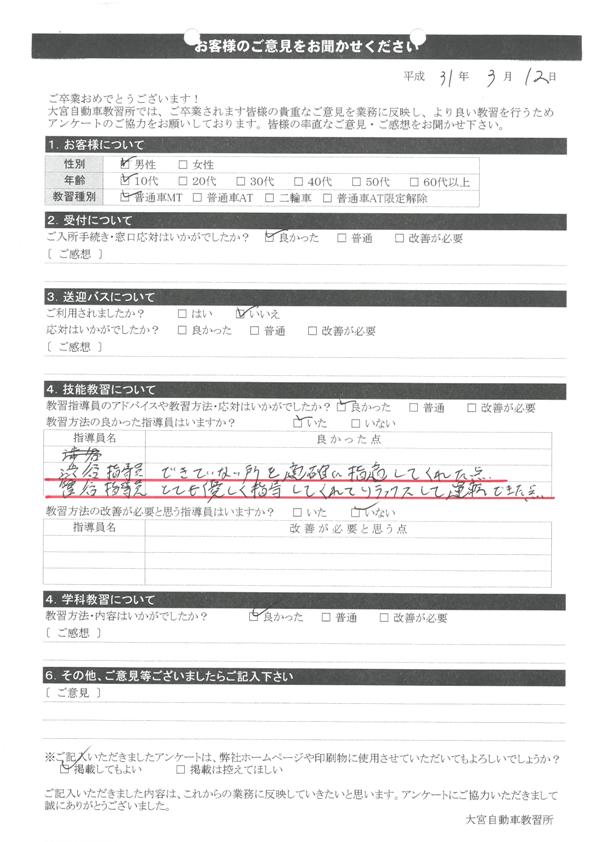 お客様のご意見をお聞かせください
平成 31 年 3 月 12 日
ご卒業おめでとうございます！
大宮自動車教習所では、ご卒業されます皆様の貴重なご意見を業務に反映し、より良い教習を行うため
アンケートのご協力をお願いしております。皆様の率直なご意見・ご感想をお聞かせ下さい。
1. お客様について
性別 ☑ 男性 □ 女性
年齢 ☑ 10代 □ 20代 □ 30代 □ 40代 □ 50代 □ 60代以上
教習種別 ☑ 普通車MT □ 普通車AT □ 二輪車 □ 普通車AT限定解除
2. 受付について
ご入所手続き・窓口応対はいかがでしたか？ ☑ 良かった □ 普通 □ 改善が必要
［ ご感想 ］
3. 送迎バスについて
ご利用されましたか？ □ はい ☑ いいえ
応対はいかがでしたか？ □ 良かった □ 普通 □ 改善が必要
［ ご感想 ］
4. 技能教習について
教習指導員のアドバイスや教習方法・応対はいかがでしたか？ ☑ 良かった □ 普通 □ 改善が必要
教習方法の良かった指導員はいますか？ ☑ いた □ いない
指導員名 良かった点
指導員 できていない所を適確に指摘してくれた点
指導員 とても優しく指導してくれてリラックスして運転できた点
教習方法の改善が必要と思う指導員はいますか？ □ いた ☑ いない
指導員名 改善が必要と思う点
4. 学科教習について
教習方法・内容はいかがでしたか？ ☑ 良かった □ 普通 □ 改善が必要
［ ご感想 ］
6. その他、ご意見等ございましたらご記入下さい
［ ご意見 ］
※ご記入いただきましたアンケートは、弊社ホームページや印刷物に使用させていただいてもよろしいでしょうか？
☑ 掲載してもよい □ 掲載は控えてほしい
ご記入いただきました内容は、これからの業務に反映していきたいと思います。アンケートにご協力いただきまして
誠にありがとうございました。
大宮自動車教習所